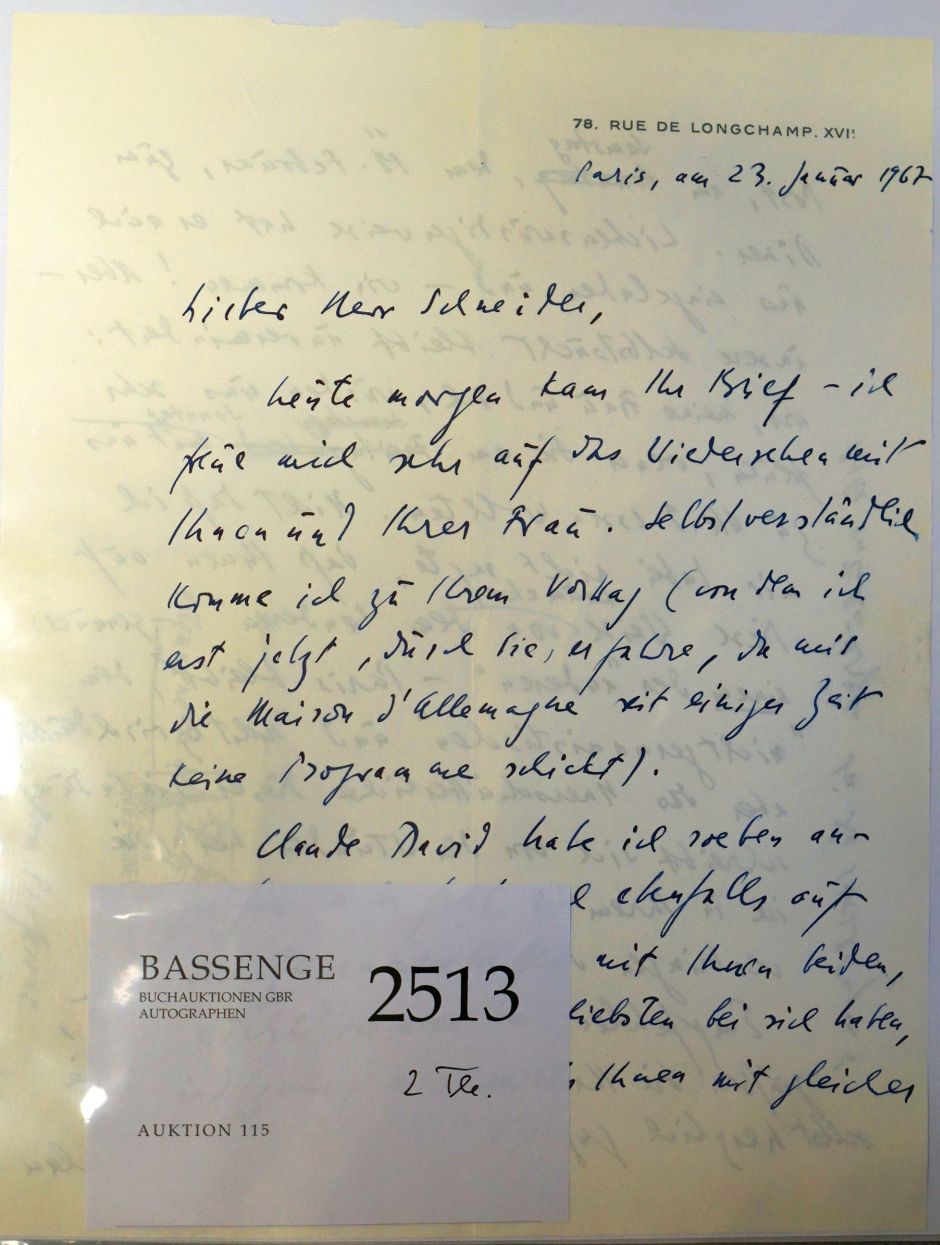 78, RUE DE LONGCHAMP. XVIE
Paris, am 23. Januar 1967
Lieber Herr Schneider,
heute morgen kam Ihr Brief – ich
freue mich sehr auf das Wiedersehen mit
Ihnen und Ihrer Frau. Selbstverständlich
komme ich zu Ihrem Vortrag (von dem ich
erst jetzt, durch Sie, erfahre, da mir
die Maison d'Allemagne seit einiger Zeit
keine Programme schickt).
Claude David habe ich soeben an-
ebenfalls auf
mit Ihnen beiden,
liebsten bei sich haben,
Ihnen mit gleicher
BASSENGE
BUCHAUKTIONEN GBR
AUTOGRAPHEN
2513
2 Tle.
AUKTION 115